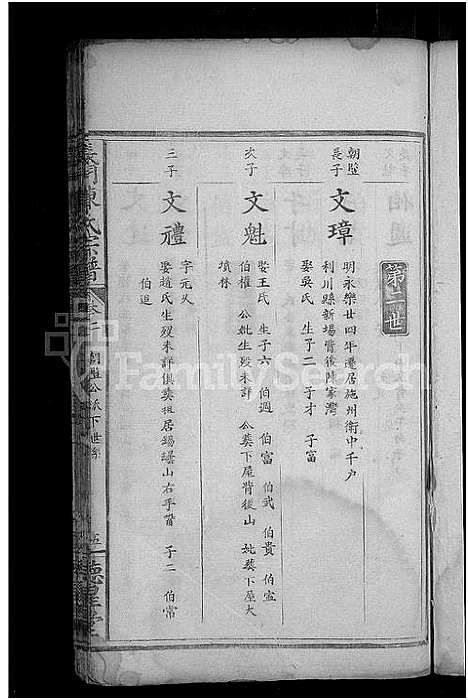 第二世
朝璧
長子
文璋
明永樂廿四年遷居施州衛中千户
利川縣新場背後陳家灣
娶吳氏 生子二 子才 子富
次子
文魁
娶王氏 生子六 伯週 伯富 伯武 伯貴 伯宣
伯權 公妣生歿未詳 公葵下屋背後山 妣葵下屋大
墳林
三子
文禮
字元久
娶趙氏生歿未詳俱葵祖居錫場山右手嘴 子二 伯常
伯追
義門陳氏宗譜
卷二
五
德星堂
FamilySearch